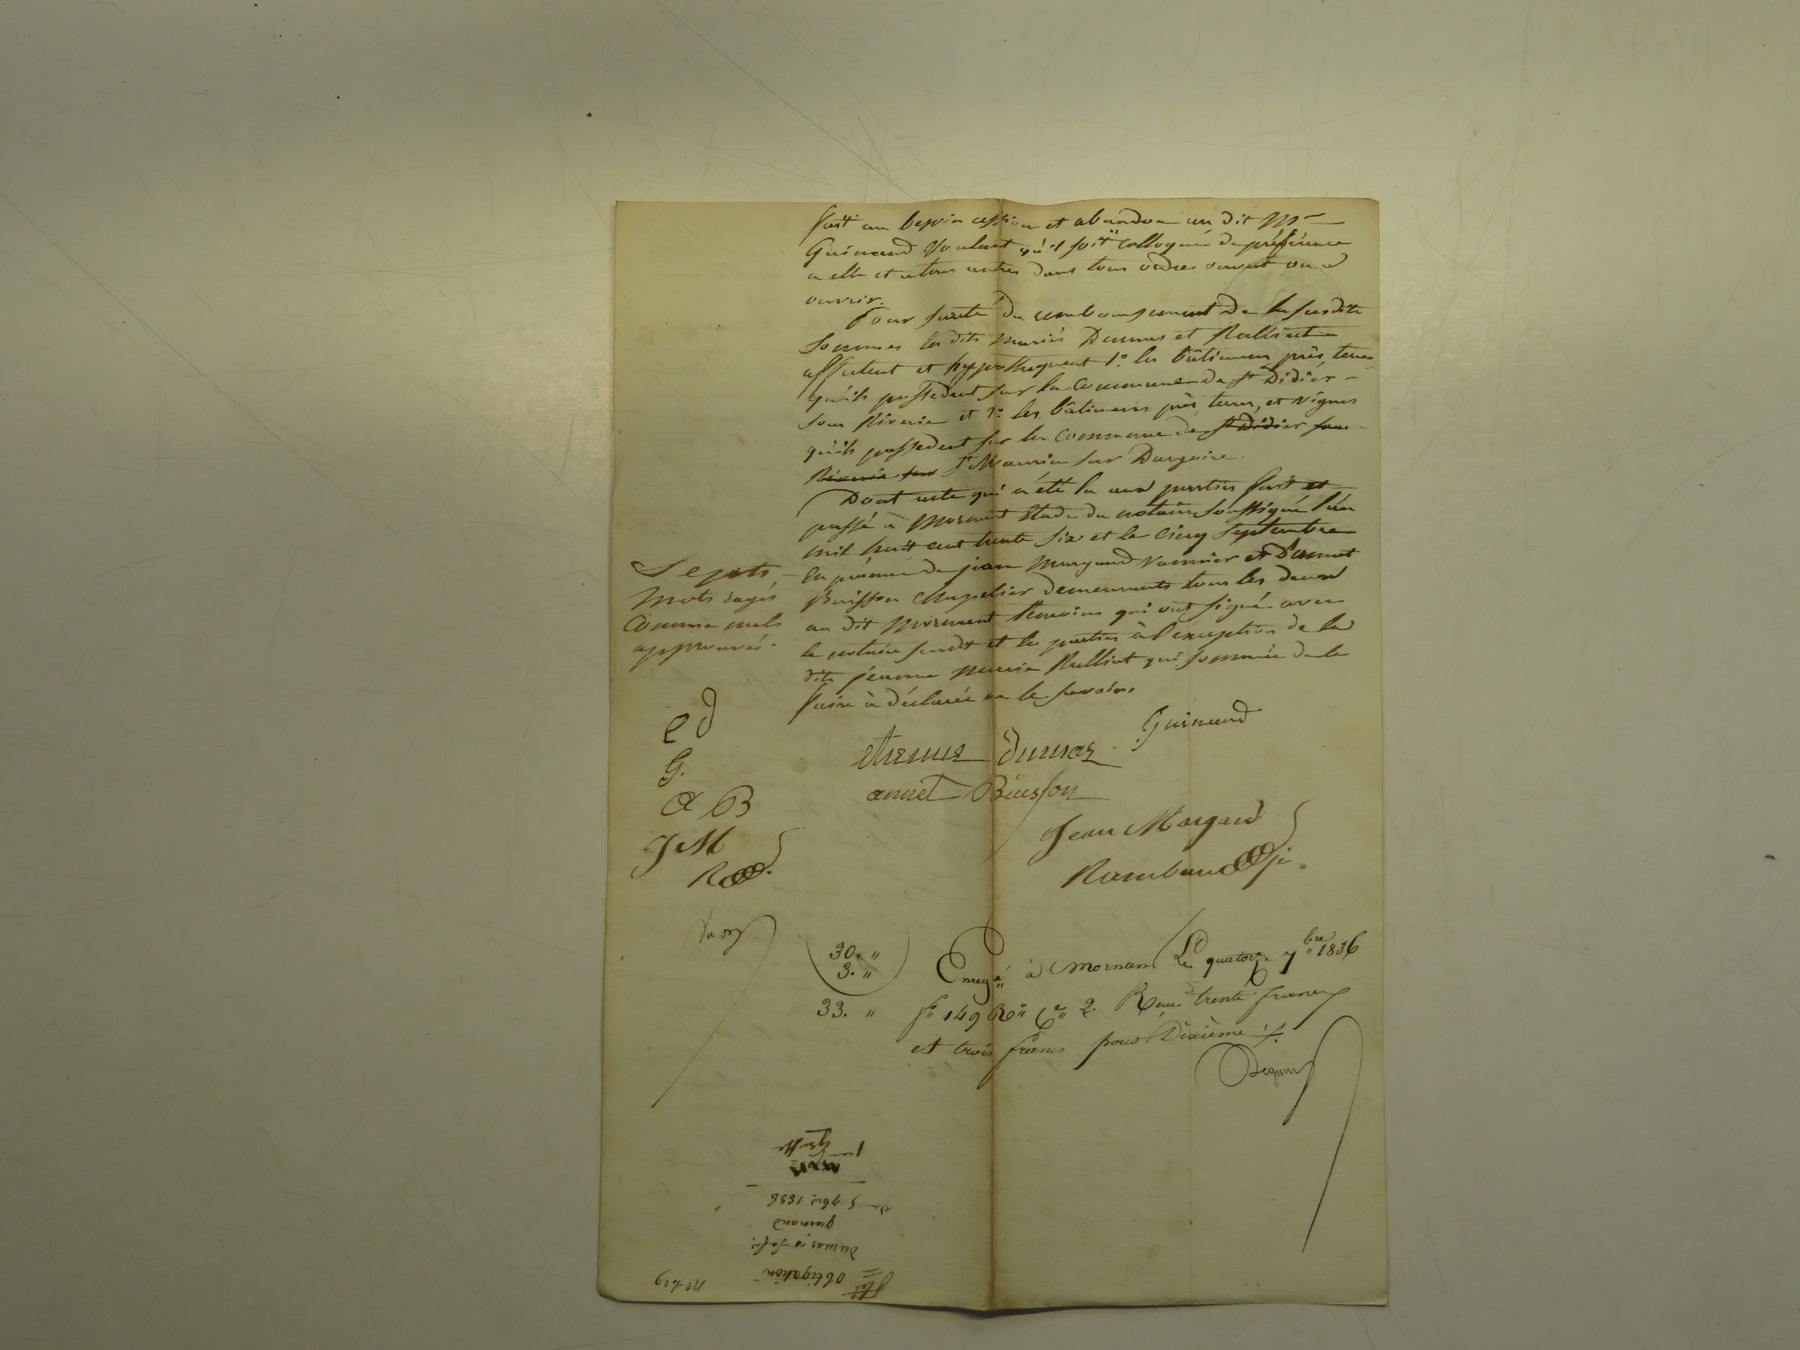 fait au besoin cession et abandon au dit Mr
Guinand voulant qu'il soit colloqué de préférence
a elle et a tous autres dans tous ordres ouvert ou a
ouvrir.
Pour sureté du remboursement de la susdite
sommes les dits mariés Dumas et Ralliat
affectent et hypothequent 1o. les bâtimens près, terres
qu'ils possedent sur la commune de St Didier
sous Riverie et 2o les bâtimens près, terres, et vignes
qu'ils possedent sur la commune de St Didier sous
Riverie sur St Maurice sur Dargoire.
Dont acte qui a été lu aux parties fait et
passé à Mornant Etude du notaire soussigné l'an
mil huit cent trente six et le cinq septembre
en présence de jean Margaud vannier et d'annet
Buisson chapelier demeurants tous les deux
au dit Mornant témoins qui ont signé avec
le notaire susdit et les parties à l'exception de la
dite jeanne marie Ralliat qui sommée de le
faire à déclaré ne le savoir.
Sept
mots rayés
comme nuls
approuvés.
e d
G.
a B
J M
R
Guinand
etienne dumas
annet Buisson
Jean Margaud
Rambaud
30. "
3. "
33. "
Enregé à Mornant Le quatorze 7bre 1836
fo 149 Ro Ce 2. Reçu trente francs
et trois francs pour Dixième
obligation
dumas a
guinand
du 5 7bre 1836
1re Grosse
No 429